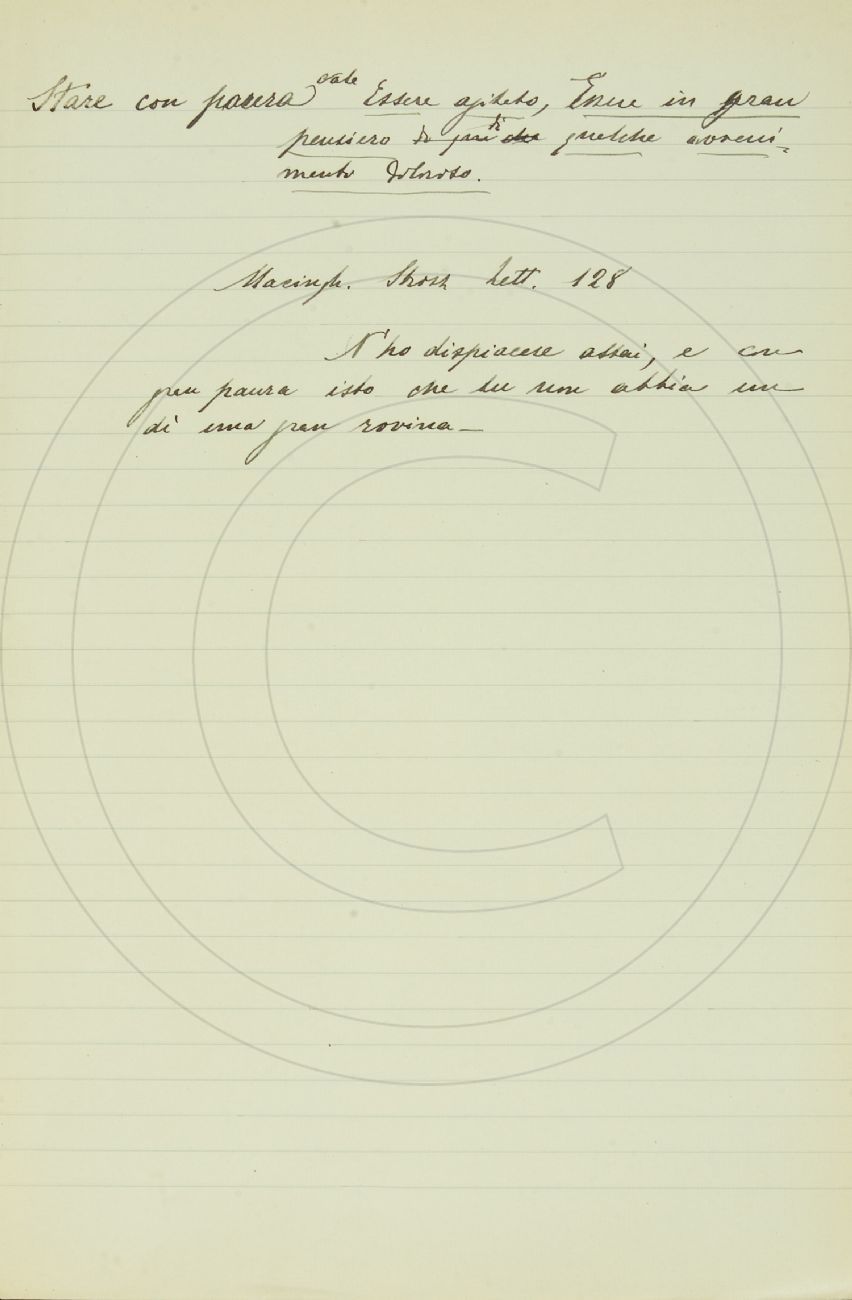 Stare con paura vale Essere agitato, Essere in gran
pensiero di qualche avveni-
mento doloroso.
Macingh. Strozz. Lett. 128
N'ho dispiacere assai, e con
gran paura isto che tu non abbia un
dì una gran rovina —